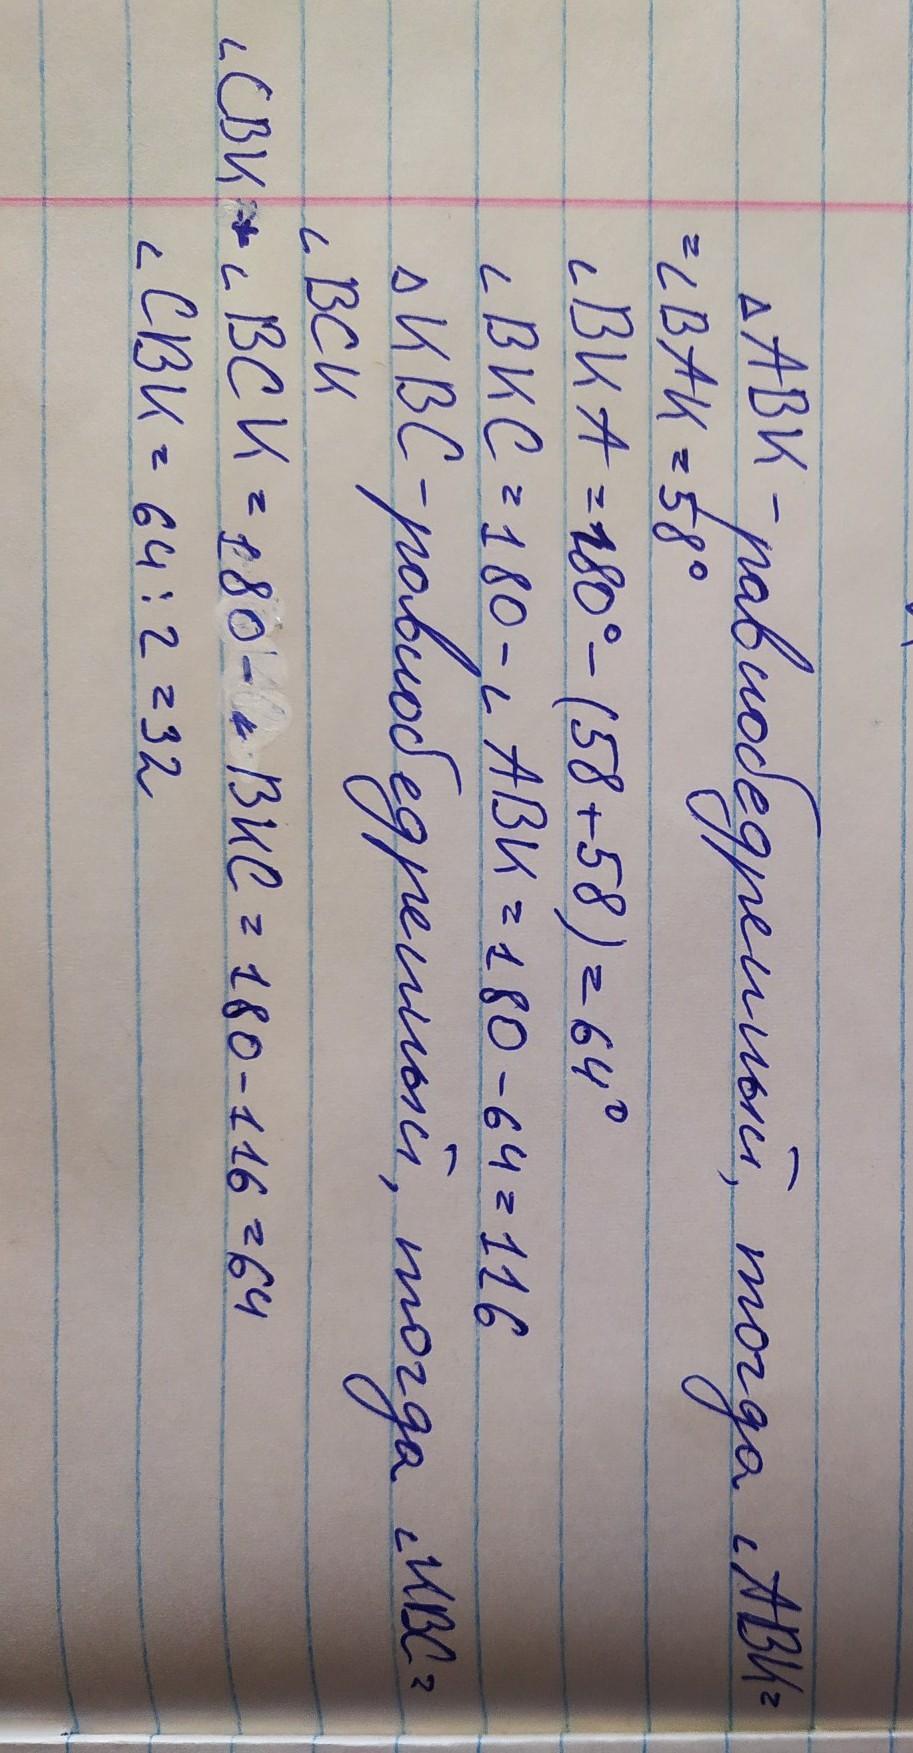 △ABK - равнобедренный, тогда ∟ABK =
= ∟BAK = 58°
∟BKA = 180° - (58 + 58) = 64°
∟BKC = 180 - ∟ABK = 180 - 64 = 116
△KBC - равнобедренный, тогда ∟KBC =
∟BCK
∟CBK + ∟BCK = 180 - ∟BKC = 180 - 116 = 64
∟CBK = 64 : 2 = 32